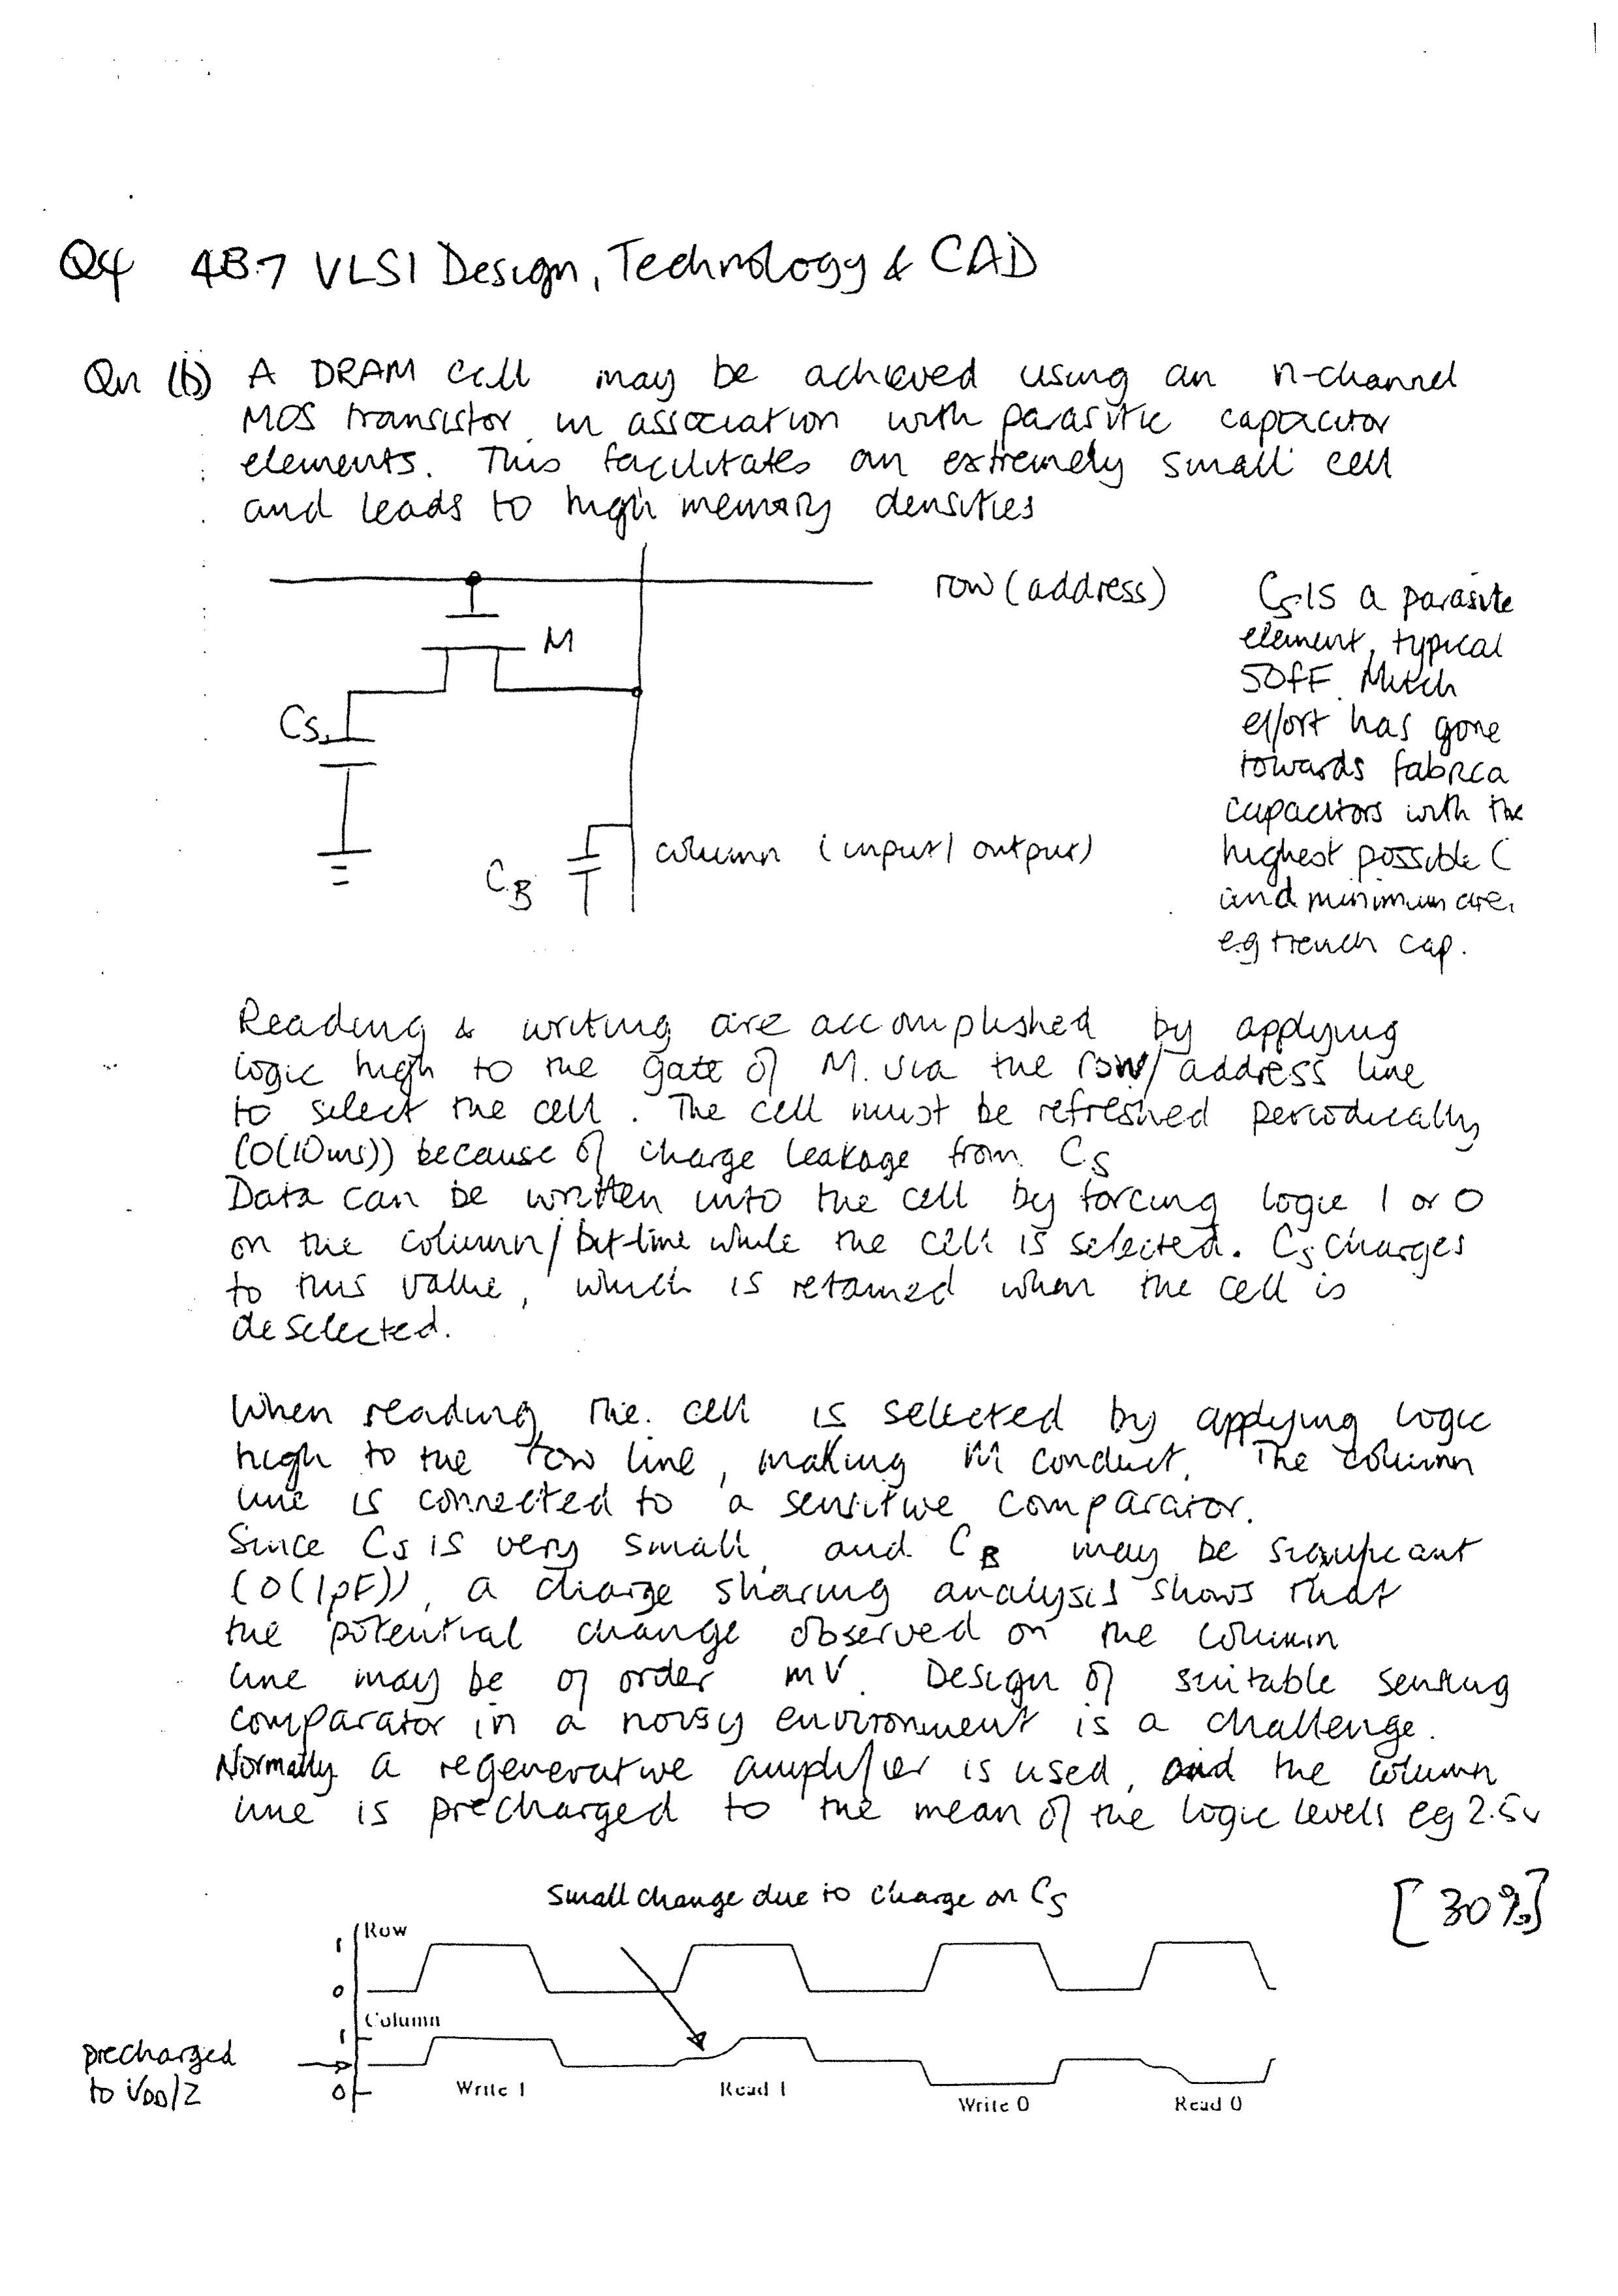 Q4 4B7 VLSI Design, Technology & CAD
Qn (b) A DRAM cell may be achieved using an n-channel
MOS transistor in association with parasitic capacitor
elements. This facilitates an extremely small cell
and leads to high memory densities
row (address)
M
Cs
CB
column (input/output)
Cs is a parasitic
element, typical
50fF. Much
effort has gone
towards fabrica
capacitors with the
highest possible C
and minimum are
e.g trench cap.
Reading & writing are accomplished by applying
logic high to the gate of M. via the row/address line
to select the cell. The cell must be refreshed periodically
(O(10ms)) because of charge leakage from Cs
Data can be written into the cell by forcing logic 1 or 0
on the column/bit-line while the cell is selected. Cs charges
to this value, which is retained when the cell is
deselected.
When reading, the cell is selected by applying logic
high to the row line, making M conduct. The column
line is connected to a sensitive comparator.
Since Cs is very small, and CB may be significant
(O(1pF)), a charge sharing analysis shows that
the potential change observed on the column
line may be of order mV. Design of suitable sensing
comparator in a noisy environment is a challenge.
Normally a regenerative amplifier is used, and the column
line is precharged to the mean of the logic levels eg 2.5v
[30%]
Small change due to charge on Cs
Row
1
0
Column
1
0
precharged
to VDD/2
Write 1
Read 1
Write 0
Read 0